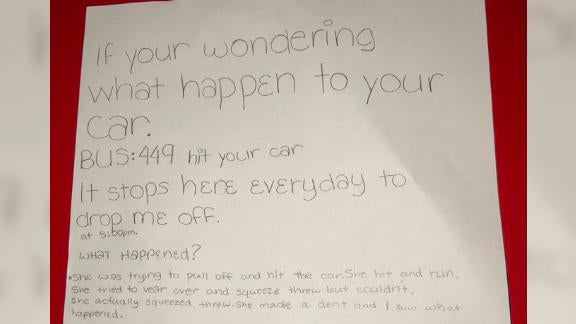 If your wondering
what happen to your
car.
BUS:449 hit your car
It stops here everyday to
drop me off.
at 5:00pm.
WHAT HAPPENED?
•She was trying to pull off and hit the car. She hit and run.
She tried to vear over and squeeze threw but couldn't.
She actually squeezed threw. She made a dent and I saw what
happened.